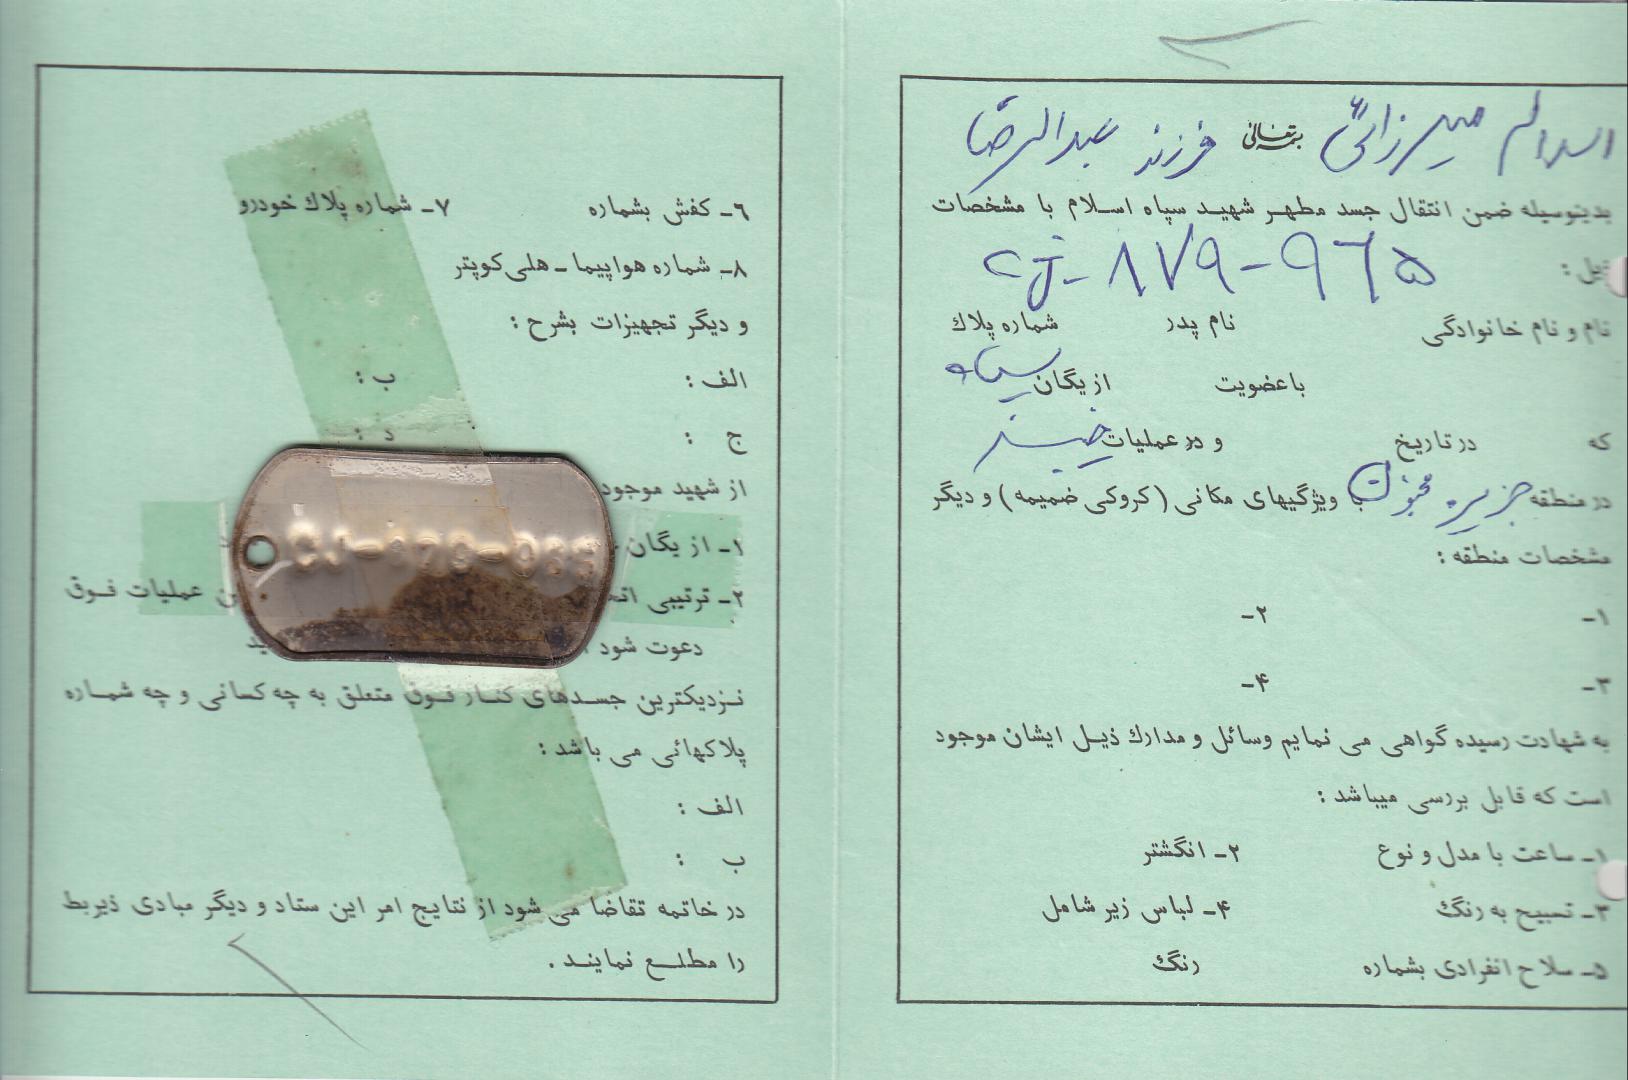 اسلام میرزائی بسمه‌تعالی فرزند عبدالرضا
بدینوسیله ضمن انتقال جسد مطهر شهید سپاه اسلام با مشخصات
ذیل : CJ-۸۷۹-۹۶۵
نام و نام خانوادگی نام پدر شماره پلاك
با عضویت از یگان سپاه
که در تاریخ و در عملیات خیبر
در منطقه جزیره مجنون با ویژگیهای مکانی (کروکی ضمیمه) و دیگر
مشخصات منطقه :
۱- ۲-
۳- ۴-
به شهادت رسیده گواهی می نمایم وسائل و مدارك ذیل ایشان موجود
است که قابل بررسی میباشد :
۱- ساعت با مدل و نوع ۲- انگشتر
۳- تسبیح به رنگ ۴- لباس زیر شامل
۵- سلاح انفرادی بشماره رنگ
۶- کفش بشماره ۷- شماره پلاك خودرو
۸- شماره هواپیما - هلی کوپتر
و دیگر تجهیزات بشرح :
الف : ب :
ج : د :
از شهید موجود
۱- از یگان
CJ-879-965
۲- ترتیبی عملیات فوق
دعوت شود
نزدیکترین جسدهای کنار فوق متعلق به چه کسانی و چه شماره
پلاکهائی می باشد :
الف :
ب :
در خاتمه تقاضا می شود از نتایج امر این ستاد و دیگر مبادی ذیربط
را مطلع نمایند .